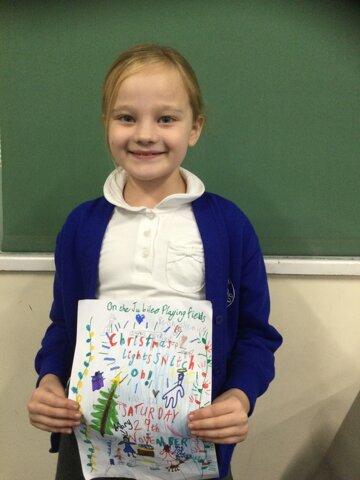 On the Jubilee Playing Fields
Christmas
Lights Switch
On!
SATURDAY
29th
NOVEMBER